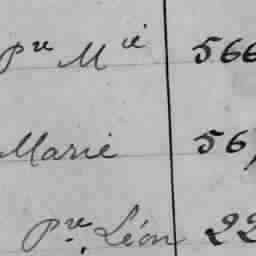 Pre Mie 566
Marie 567
Pre. Léon 22